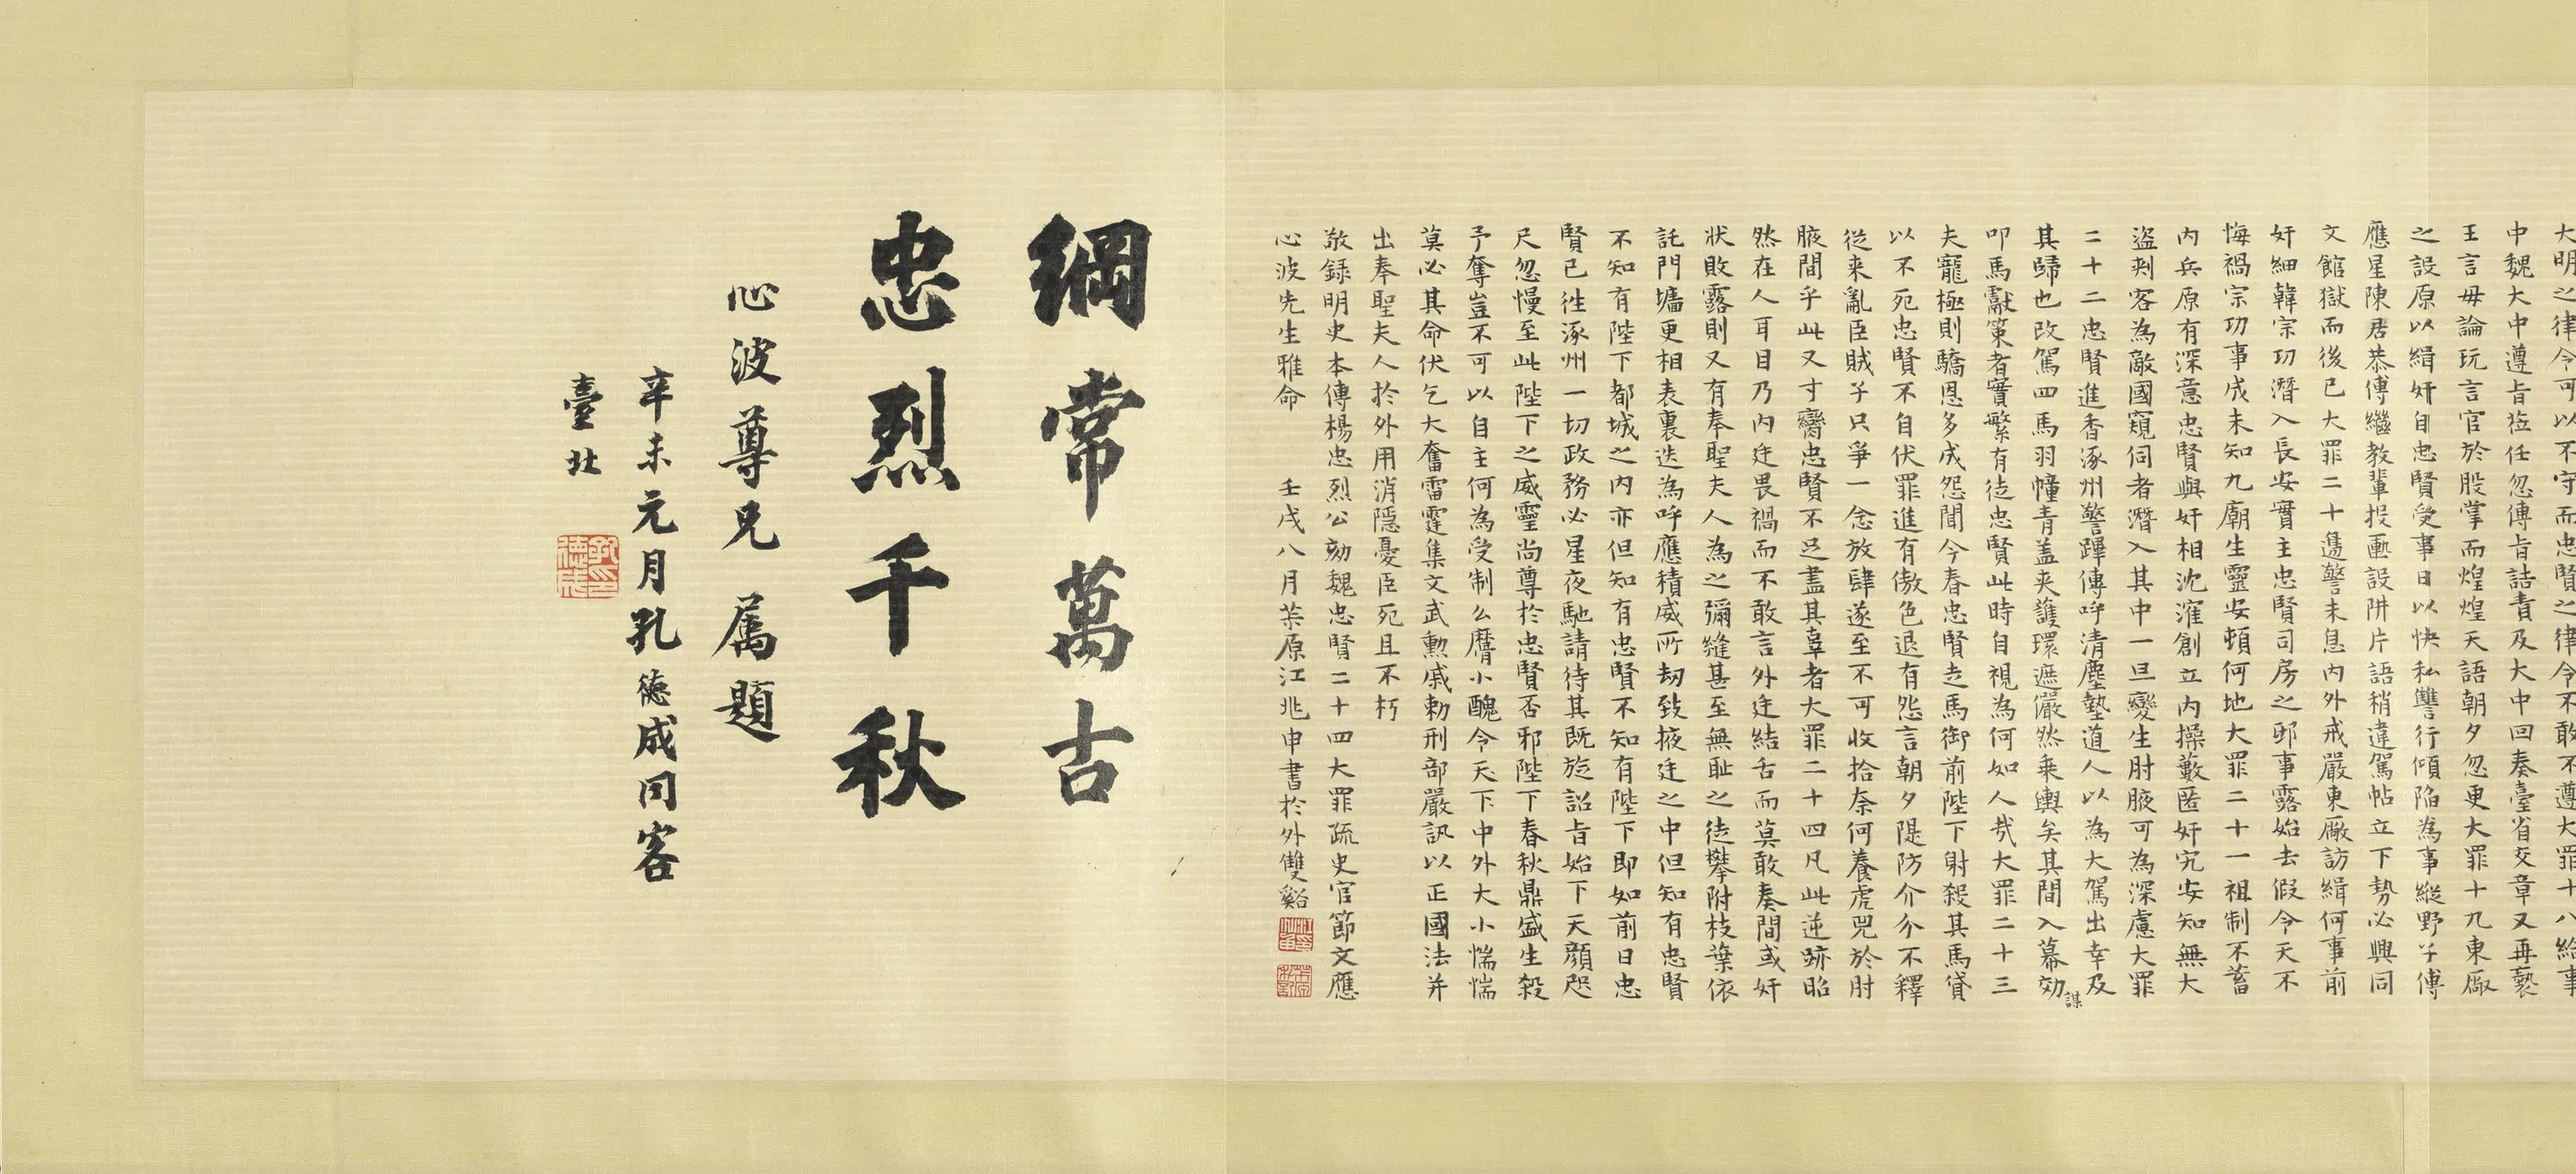 大明之律令可以不守而忠賢之律令不敢不遵大罪十八給事
中魏大中遵旨蒞任忽傳旨詰責及大中回奏臺省交章又再褻
王言毋論玩言官於股掌而煌煌天語朝夕忽更大罪十九東廠
之設原以緝奸自忠賢受事日以快私讐行傾陷為事縱野子傅
應星陳居恭傅繼教輩投匭設阱片語稍違駕帖立下勢必興同
文館獄而後已大罪二十邊警未息內外戒嚴東廠訪緝何事前
奸細韓宗功潛入長安實主忠賢司房之邸事露始去假令天不
悔禍宗功事成未知九廟生靈安頓何地大罪二十一祖制不蓄
內兵原有深意忠賢與奸相沈㴶創立內操藪匿奸宄安知無大
盜刺客為敵國窺伺者潛入其中一旦變生肘腋可為深慮大罪
二十二忠賢進香涿州警蹕傳呼清塵墊道人以為大駕出幸及
其歸也改駕四馬羽幢青蓋夾護環遮儼然乘輿矣其間入幕効謀
叩馬獻策者實繁有徒忠賢此時自視為何如人哉大罪二十三
夫寵極則驕恩多成怨聞今春忠賢走馬御前陛下射殺其馬貸
以不死忠賢不自伏罪進有傲色退有怨言朝夕隄防介介不釋
從来亂臣賊子只爭一念放肆遂至不可收拾奈何養虎兕於肘
腋間乎此又寸臠忠賢不足盡其辜者大罪二十四凡此逆跡昭
然在人耳目乃內廷畏禍而不敢言外廷結舌而莫敢奏間或奸
狀敗露則又有奉聖夫人為之彌縫甚至無恥之徒攀附枝葉依
託門墻更相表裏迭為呼應積威所劫致掖廷之中但知有忠賢
不知有陛下都城之內亦但知有忠賢不知有陛下即如前日忠
賢已往涿州一切政務必星夜馳請待其既旋詔旨始下天顏咫
尺忽慢至此陛下之威靈尚尊於忠賢否邪陛下春秋鼎盛生殺
予奪豈不可以自主何為受制么麿小醜令天下中外大小惴惴
莫必其命伏乞大奮雷霆集文武勳戚勅刑部嚴訊以正國法并
出奉聖夫人於外用消隱憂臣死且不朽
敬録明史本傳楊忠烈公劾魏忠賢二十四大罪疏史官節文應
心波先生雅命　壬戌八月茮原江兆申書於外雙谿
綱常萬古
忠烈千秋
心波尊兄 屬題
辛未元月孔德成同客
臺北
孔德成印